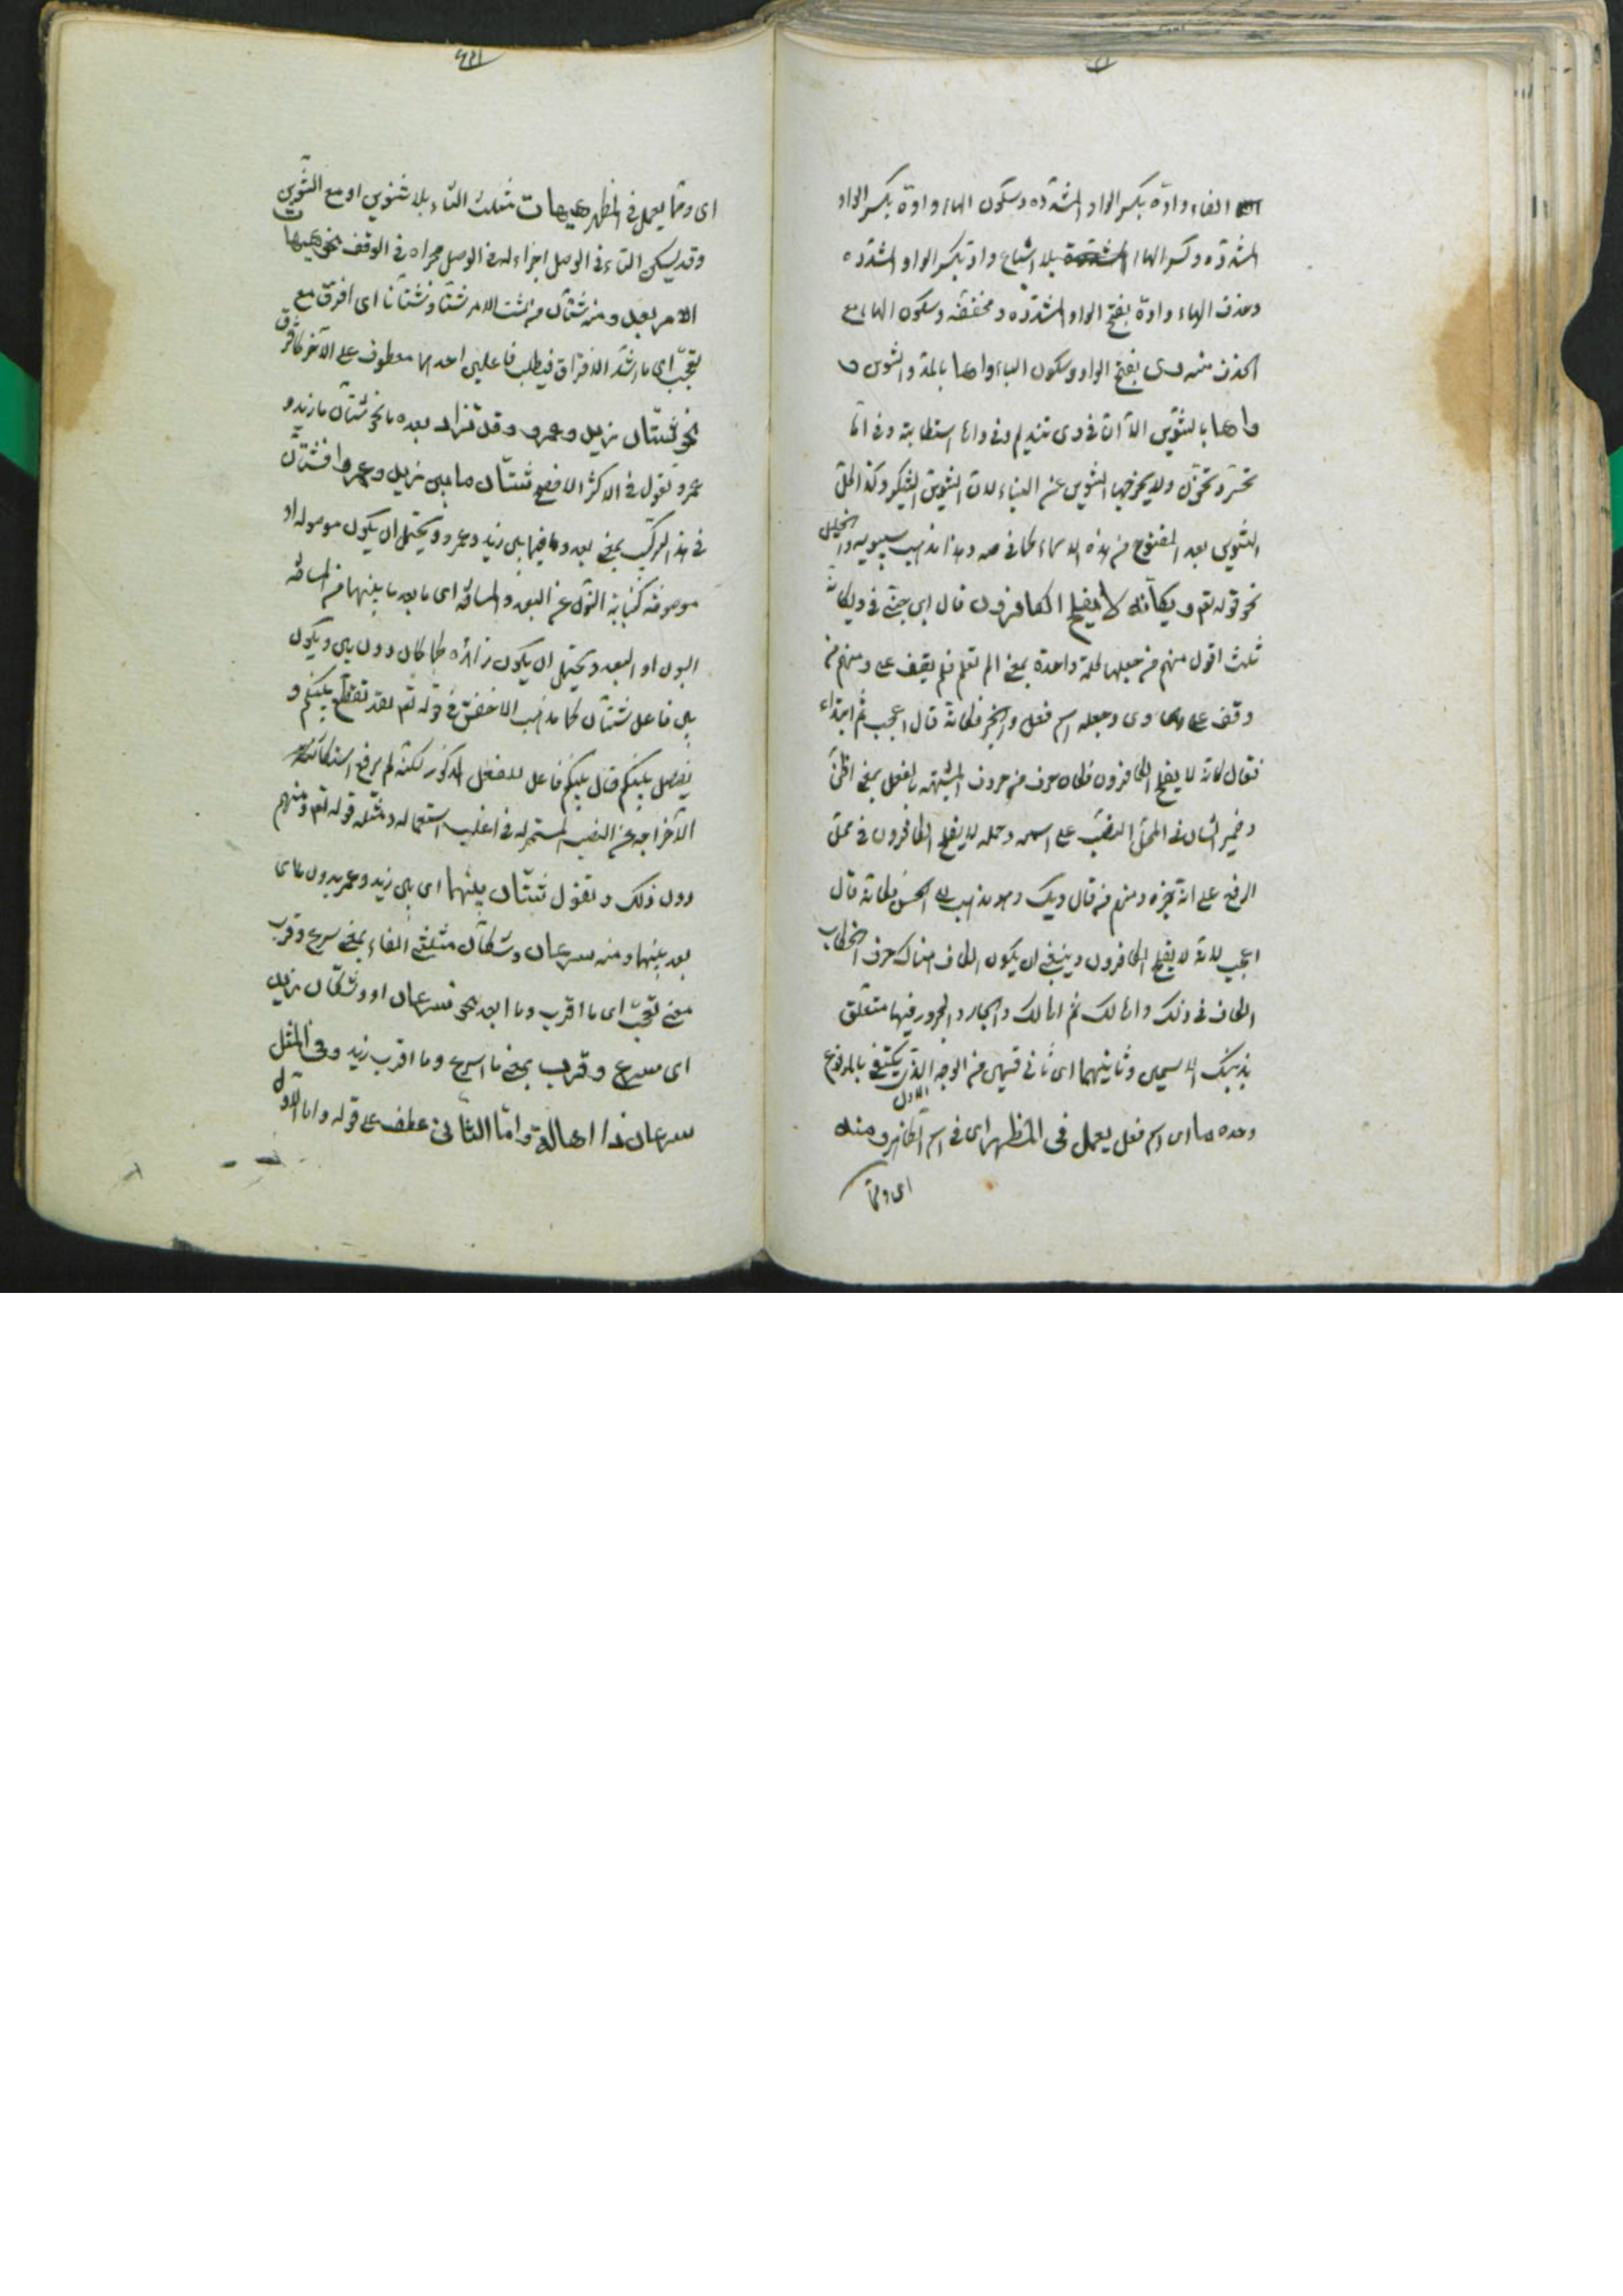 الفاء واوّه بكسر الواو المشدّدة وسكون الهاء واوّه بكسر الواو
المشدّدة وكسر الهاء بلا اشباع واوّ بكسر الواو المشدّدة
وحذف الهاء واوّة بفتح الواو المشدّدة ومخففة وسكون الهاء مع
منه وى بفتح الواو وسكون الياء واها بالمد والتنوين و
واها بالتنوين الّا انّ فى وى تنديم وفى واها استطابة وفى
تحسّر وتحزّن ولا يخرجها التنوين عن البناء لان التنوين التنكير وكذا
التنوين بعد المفتوح من هذه الاسماء كما فى صه وهذا مذهب سيبويه والخليل
نحو قوله تعم ويكأنّه لا يفلح الكافرون قال ابن جنّى فى ويكانّه
ثلث اقوال منهم من جعلها كلمة واحدة بمعنى الم تعلم فلم يقف على ومنهم من
وقف على وى وجعله اسم فعل قال اعجب ثم ابتداء
فقال كانّه لا يفلح الكافرون فكان حرف من حروف المشبّهة بالفعل بمعنى اظنّ
وضمير الشان فى المحلّ النصب على اسمه وجملة لا يفلح الكافرون فى محلّ
الرفع على انّه خبره ومنهم من قال ويك وهو مذهب ابى الحسن فكانه قال
اعجب لانّه لا يفلح الكافرون وينبغى ان يكون الكاف هناك حرف الخطاب
الكاف فى ذلك واما لك ثم اما لك والجار والمجرور فيهما متعلّق
بذينك الاسمين وثانيهما اى ثانى قسمين من الوجه الاول الذى يكتفى بالمرفوع
وحده ما اى اسم فعل يعمل فى المظهر اى فى اسم الظاهر ومنه
اى وممّا
اى وممّا يعمل فى المظهر هيهات مثلث التّاء بلا تنوين او مع التنوين
وقد يسكن التاء فى الوصل اجراء له فى الوصل مجراه فى الوقف نحو هيهات
الامر بعد ومنه شتّان من شت الامر شتّا وشتاتا اى افترق مع
تعجّب اى ما اشدّ الافتراق فيطلب فاعلين احدهما معطوف على الآخر كافترق
نحو شتّان زيد وعمرو وقد تزاد بعده ما نحو شتّان ما زيد و
عمرو وتقول فى الاكثر الافصح شتّان ما بين زيد وعمرو فشتّان
فى هذا التركيب بمعنى بعد وما فيما بين زيد وعمرو ويحتمل ان يكون موصولة او
موصوفة كناية عن البعد والمسافة اى ما بعد ما بينهما من المسافة
البون او البعد ويحتمل ان يكون زائدة كما كان دون بين ويكون
بين فاعل شتّان كما مذهب الاخفش فى قوله تعم لقد تقطّع بينكم و
يفصل بينكم قال بينكم فاعل للفعل المذكور لكنّه لم يرفع
لاخراجه عن النصب المستمرّ له فى اغلب استعماله ومثله قوله تعم ومنهم
دون ذلك وتقول شتّان بينهما اى بين زيد وعمرو بدون ما اى
بعد بينهما ومنه سرعان وشكان مثلثى الفاء بمعنى سرع وقرب
معنى تعجّب اى ما اقرب وما ابعد نحو سرعان او وشكان زيد
اى سرع وقرب بمعنى ما اسرع وما اقرب زيد وفى المثل
سرعان ذا اهالة وامّا الثانى عطف على قوله واما الاوّل